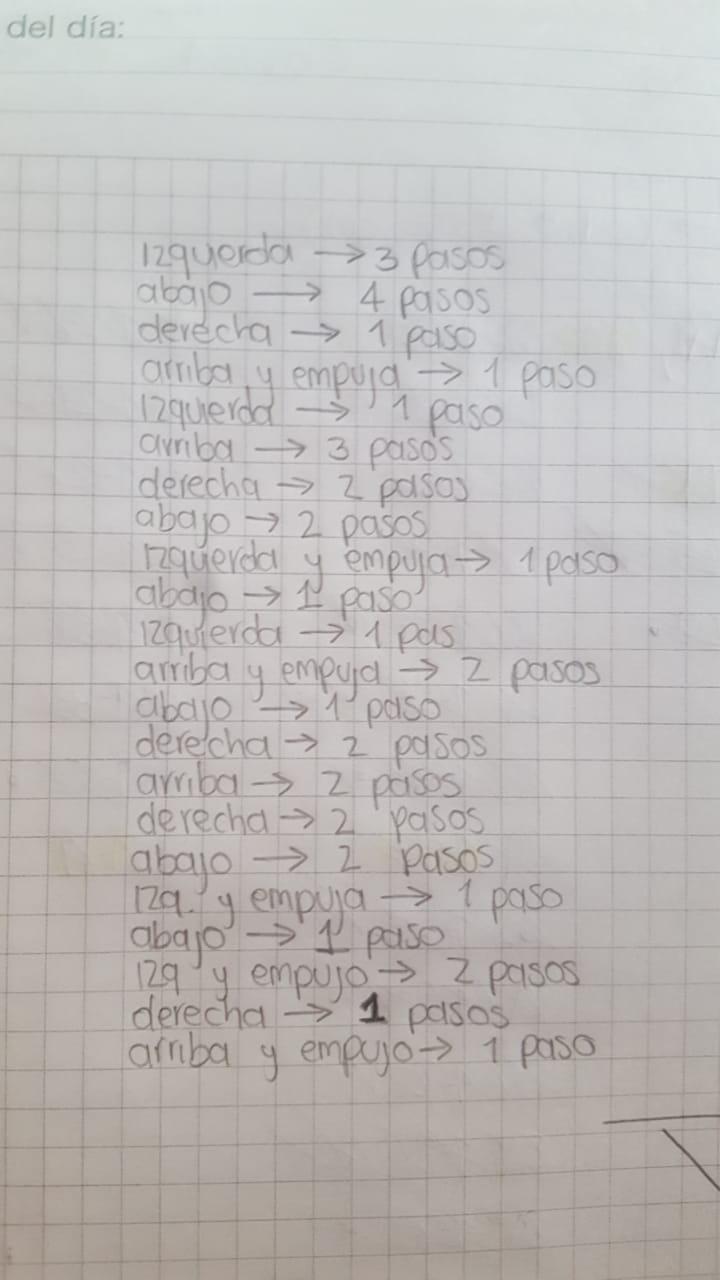 del día:
Izquerda → 3 pasos
abajo → 4 pasos
derecha → 1 paso
arriba y empuja → 1 paso
Izquierda → 1 paso
arriba → 3 pasos
derecha → 2 pasos
abajo → 2 pasos
Izquerda y empuja → 1 paso
abajo → 1 paso
Izquierda → 1 pas
arriba y empuja → 2 pasos
abajo → 1 paso
derecha → 2 pasos
arriba → 2 pasos
derecha → 2 pasos
abajo → 2 pasos
Izq. y empuja → 1 paso
abajo → 1 paso
Izq y empujo → 2 pasos
derecha → 1 pasos
arriba y empujo → 1 paso